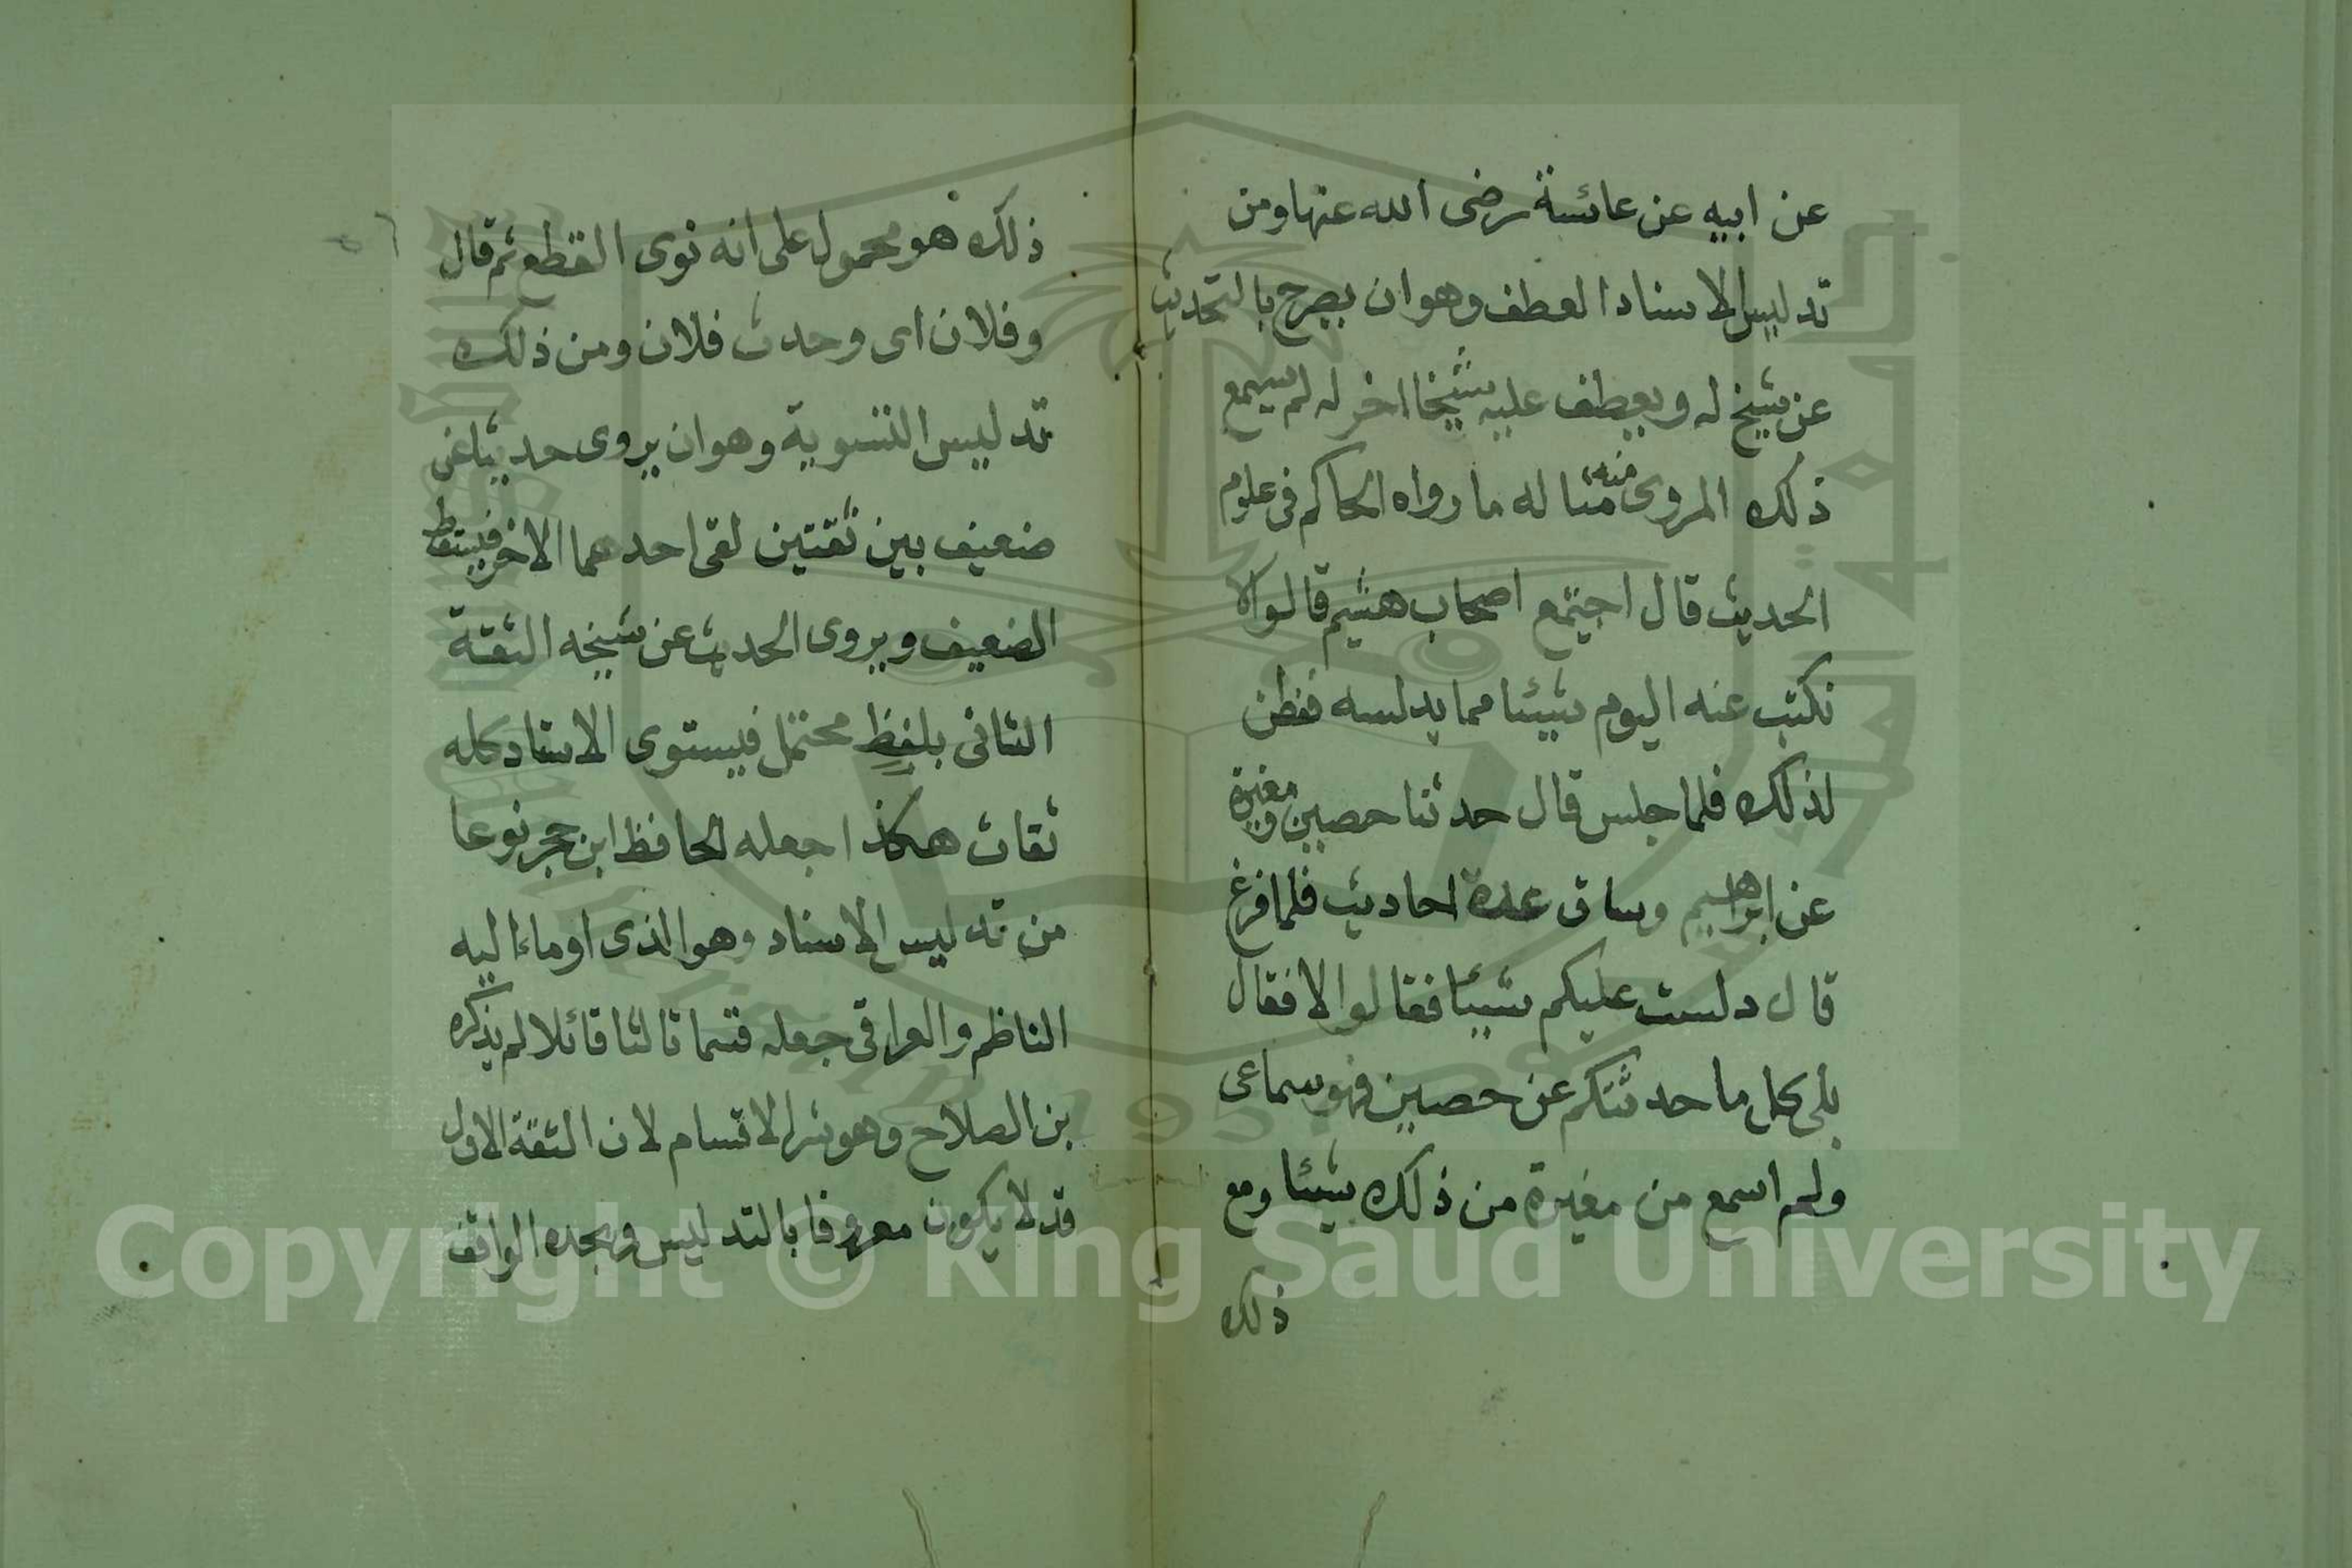 عن ابيه عن عائشة رضى الله عنها ومن
تدليس الاسناد العطف وهو ان يصرح بالتحديث
عن شيخ له ويعطف عليه شيخا اخر له لم يسمع
ذلك المروى منه مثاله ما رواه الحاكم فى علوم
الحديث قال اجتمع اصحاب هشيم قالوا لا
نكتب عنه اليوم شيئا مما يدلسه ففطن
لذلك فلما جلس قال حدثنا حصين ومغيرة
عن ابراهيم وساق عدة احاديث فلما فرغ
قال دلست عليكم شيئا فقالوا لا فقال
بلى كل ما حدثتكم عن حصين فهو سماعى
ولم اسمع من مغيرة من ذلك شيئا ومع
ذلك
ذلك هو محمول على انه نوى القطع ثم قال
وفلان اى وحدث فلان ومن ذلك
تدليس التسوية وهو ان يروى حديثا عن
ضعيف بين ثقتين لقى احدهما الاخر فيسقط
الضعيف ويروى الحديث عن شيخه الثقة
الثانى بلفظ محتمل فيستوى الاسناد كله
ثقات هكذا جعله الحافظ ابن حجر نوعا
من تدليس الاسناد وهو الذى اوماء اليه
الناظم والعراقى جعله قسما ثالثا قائلا لم يذكره
بن الصلاح وهو شر الاقسام لان الثقة الاول
قد لا يكون معروفا بالتدليس ويجده الواقف
Copyright © King Saud University